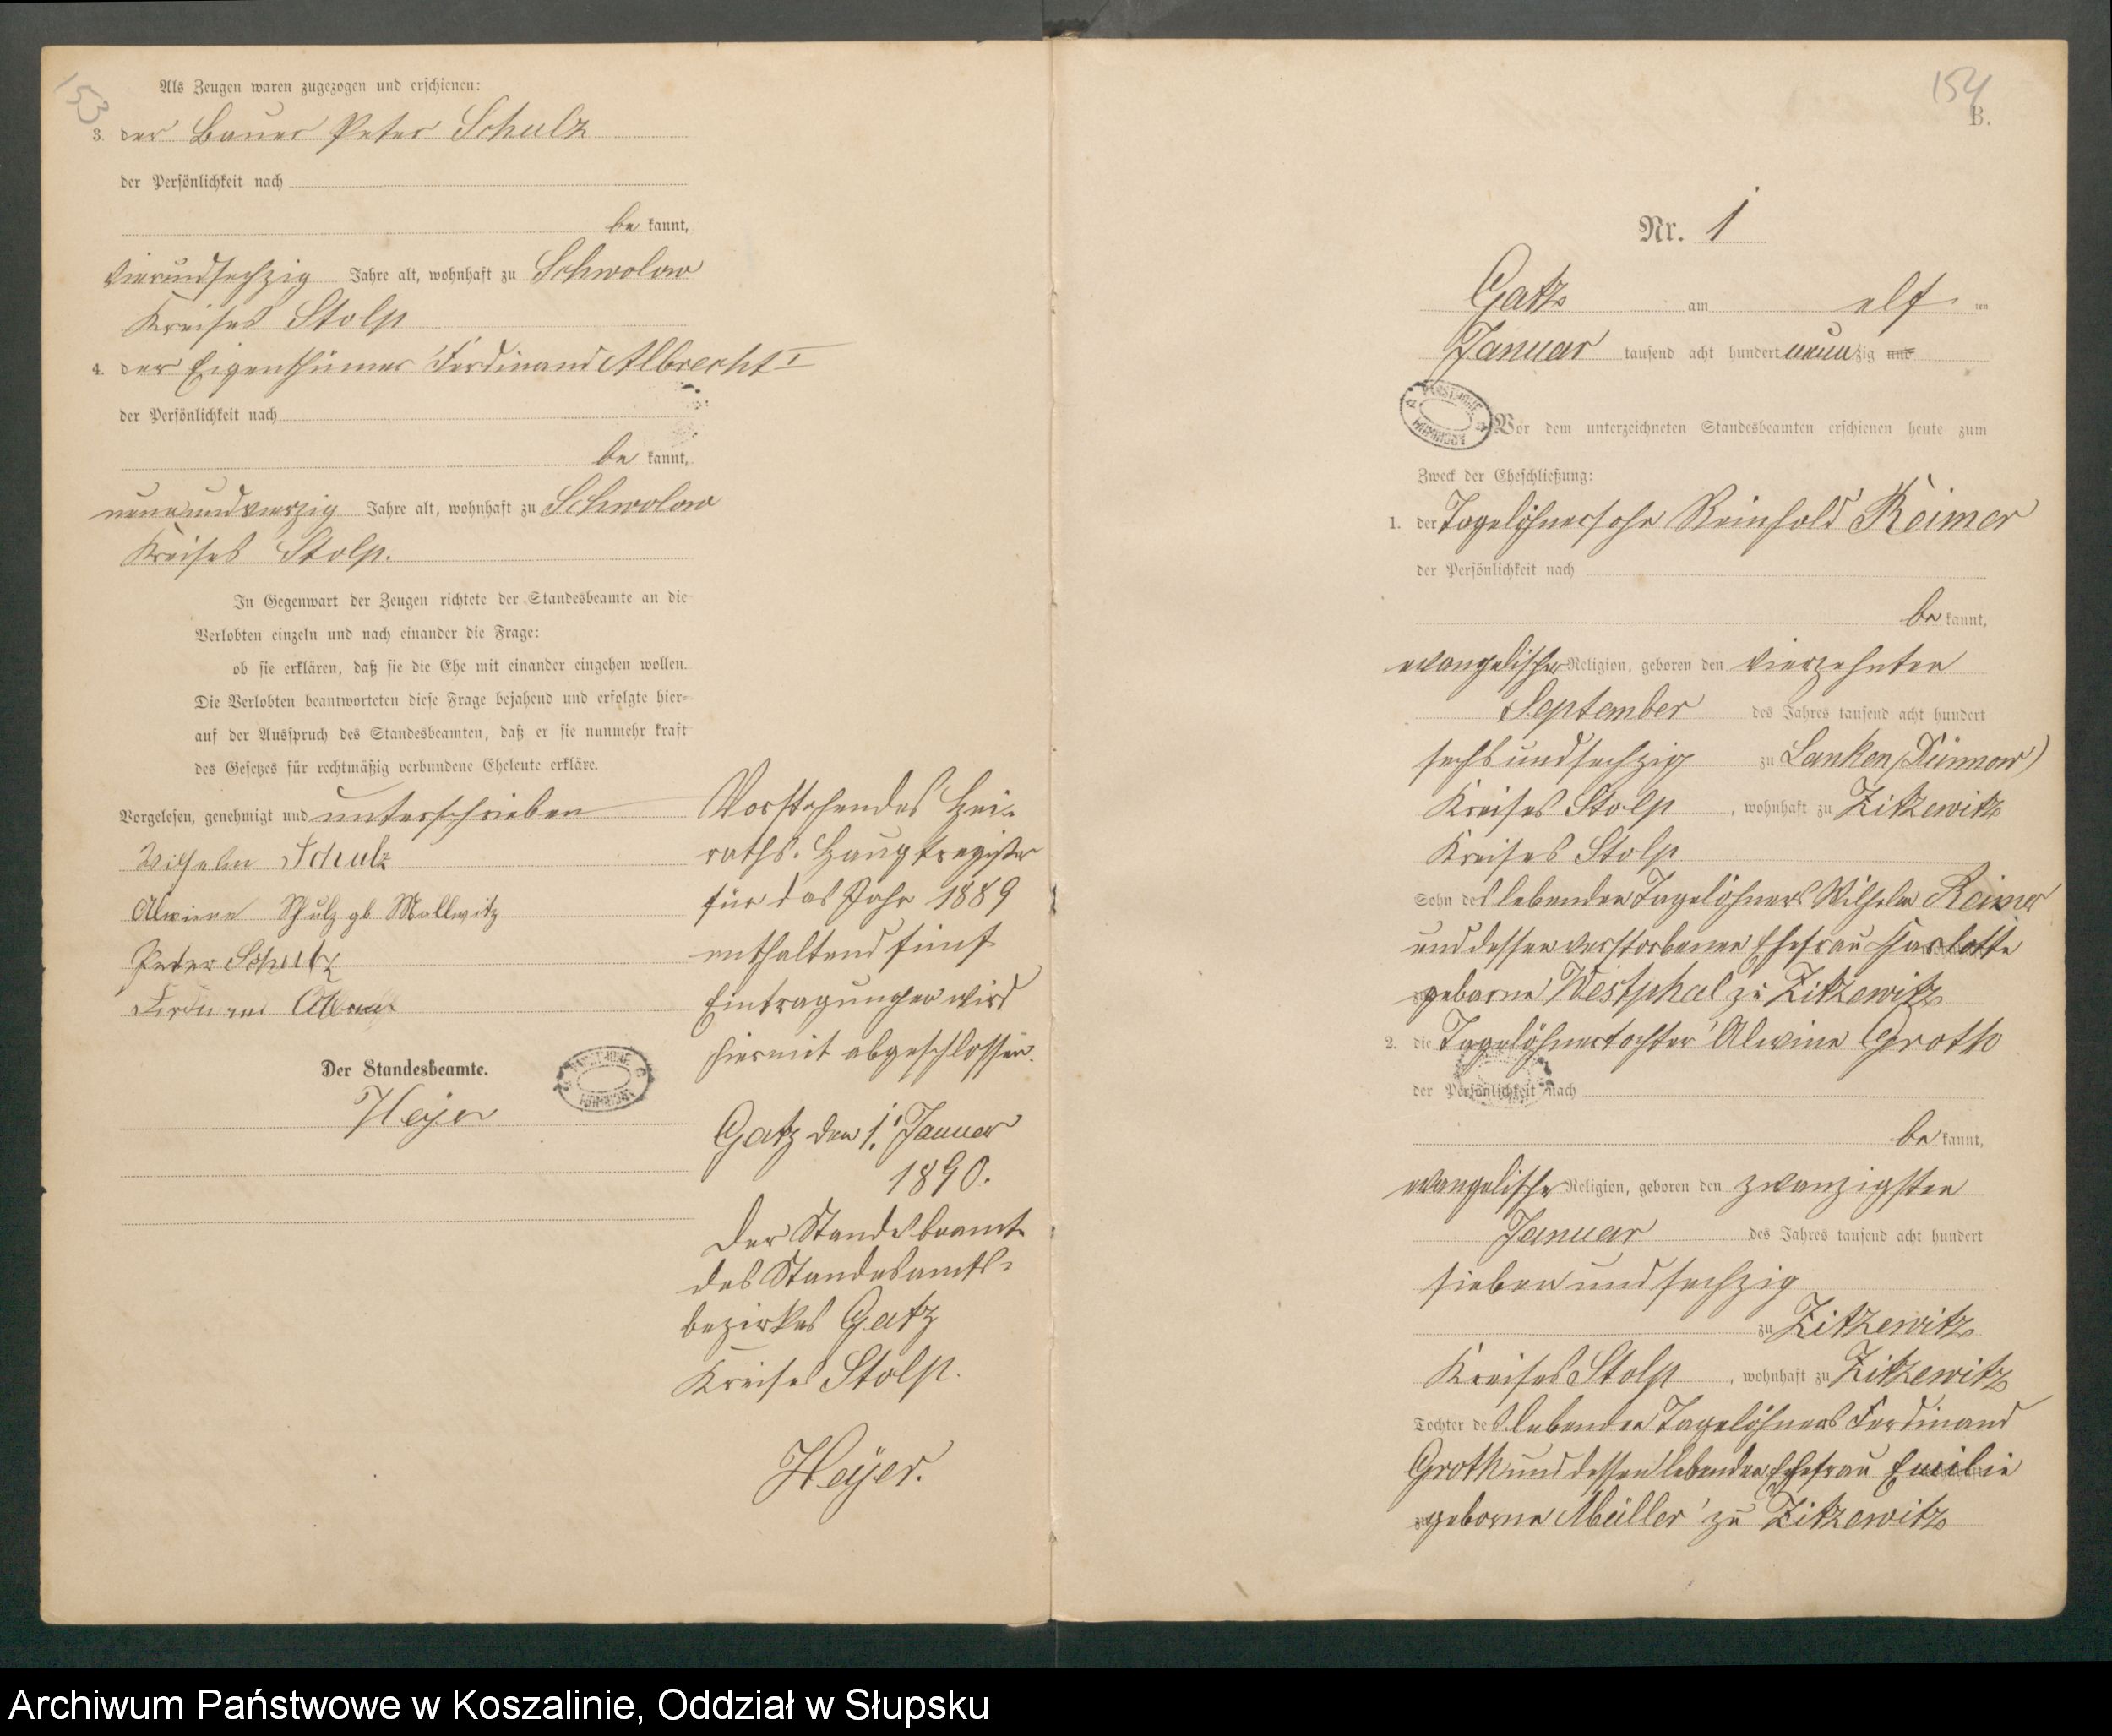 153
Als Zeugen waren zugezogen und erschienen:
3. der Bauer Peter Schulz
der Persönlichkeit nach
be kannt,
vierundsechzig Jahre alt, wohnhaft zu Schwolow
Kreises Stolp
4. der Eigenthümer Ferdinand Albrecht I
der Persönlichkeit nach
be kannt,
neunundvierzig Jahre alt, wohnhaft zu Schwolow
Kreises Stolp.
In Gegenwart der Zeugen richtete der Standesbeamte an die
Verlobten einzeln und nach einander die Frage:
ob sie erklären, daß sie die Ehe mit einander eingehen wollen.
Die Verlobten beantworteten diese Frage bejahend und erfolgte hier-
auf der Ausspruch des Standesbeamten, daß er sie nunmehr kraft
des Gesetzes für rechtmäßig verbundene Eheleute erkläre.
Vorgelesen, genehmigt und unterschrieben
Wilhelm Schulz
Alwine Schulz gb Mollwitz
Peter Schulz
Der Standesbeamte.
Heyer
Vorstehendes Hei-
raths-Hauptregister
für das Jahr 1889
enthaltend fünf
Eintragungen wird
hiermit abgeschlossen.
Gatz den 1. Januar
1890.
Der Standesbeamte
des Standesamts-
bezirkes Gatz
Kreises Stolp.
Heyer.
154
B.
Nr. 1
Gatz am elf ten
Januar tausend acht hundert neunzig und
Vor dem unterzeichneten Standesbeamten erschienen heute zum
Zweck der Eheschließung:
1. der Tagelöhnersohn Reinhold Reimer
der Persönlichkeit nach
be kannt,
evangelischer Religion, geboren den vierzehnten
September des Jahres tausend acht hundert
sechsundsechzig zu Lanken (Dünnow)
Kreises Stolp, wohnhaft zu Zitzewitz
Kreises Stolp
Sohn des lebenden Tagelöhners Wilhelm Reimer
und dessen verstorbenen Ehefrau Harlotte
geborne Westphal zu Zitzewitz
2. die Tagelöhnertochter Alwine Groth
der Persönlichkeit nach
be kannt,
evangelischer Religion, geboren den zwanzigsten
Januar des Jahres tausend acht hundert
siebenundsechzig
zu Zitzewitz
Kreises Stolp, wohnhaft zu Zitzewitz
Tochter des lebenden Tagelöhners Ferdinand
Groth und dessen lebenden Ehefrau Emilie
geborne Müller zu Zitzewitz
Archiwum Państwowe w Koszalinie, Oddział w Słupsku